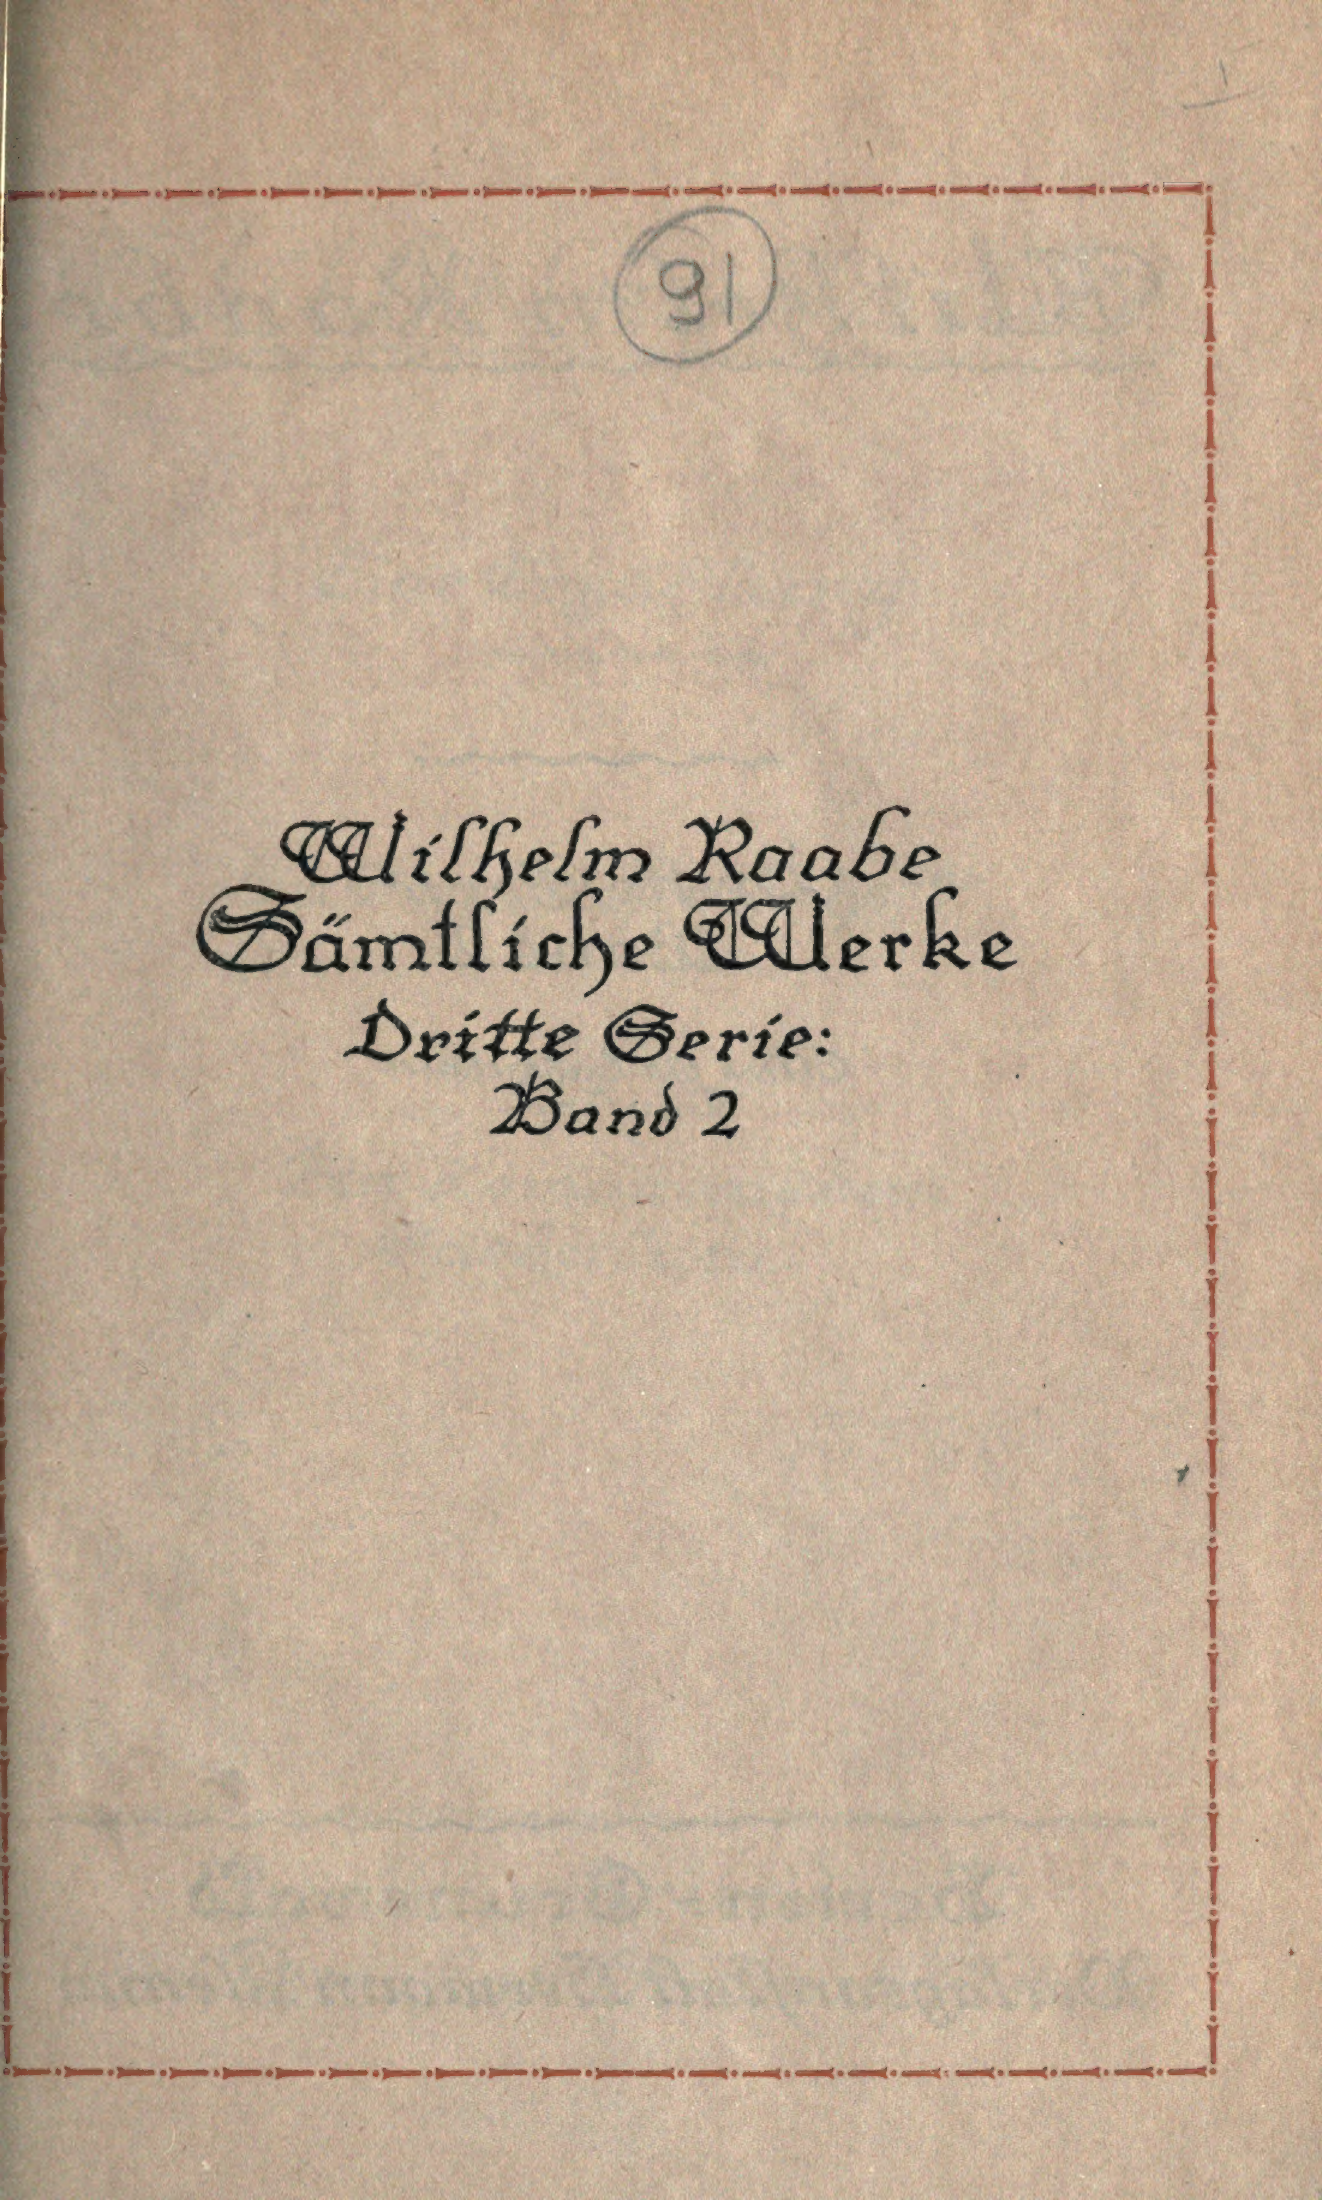 91
Wilhelm Raabe
Sämtliche Werke
Dritte Serie:
Band 2